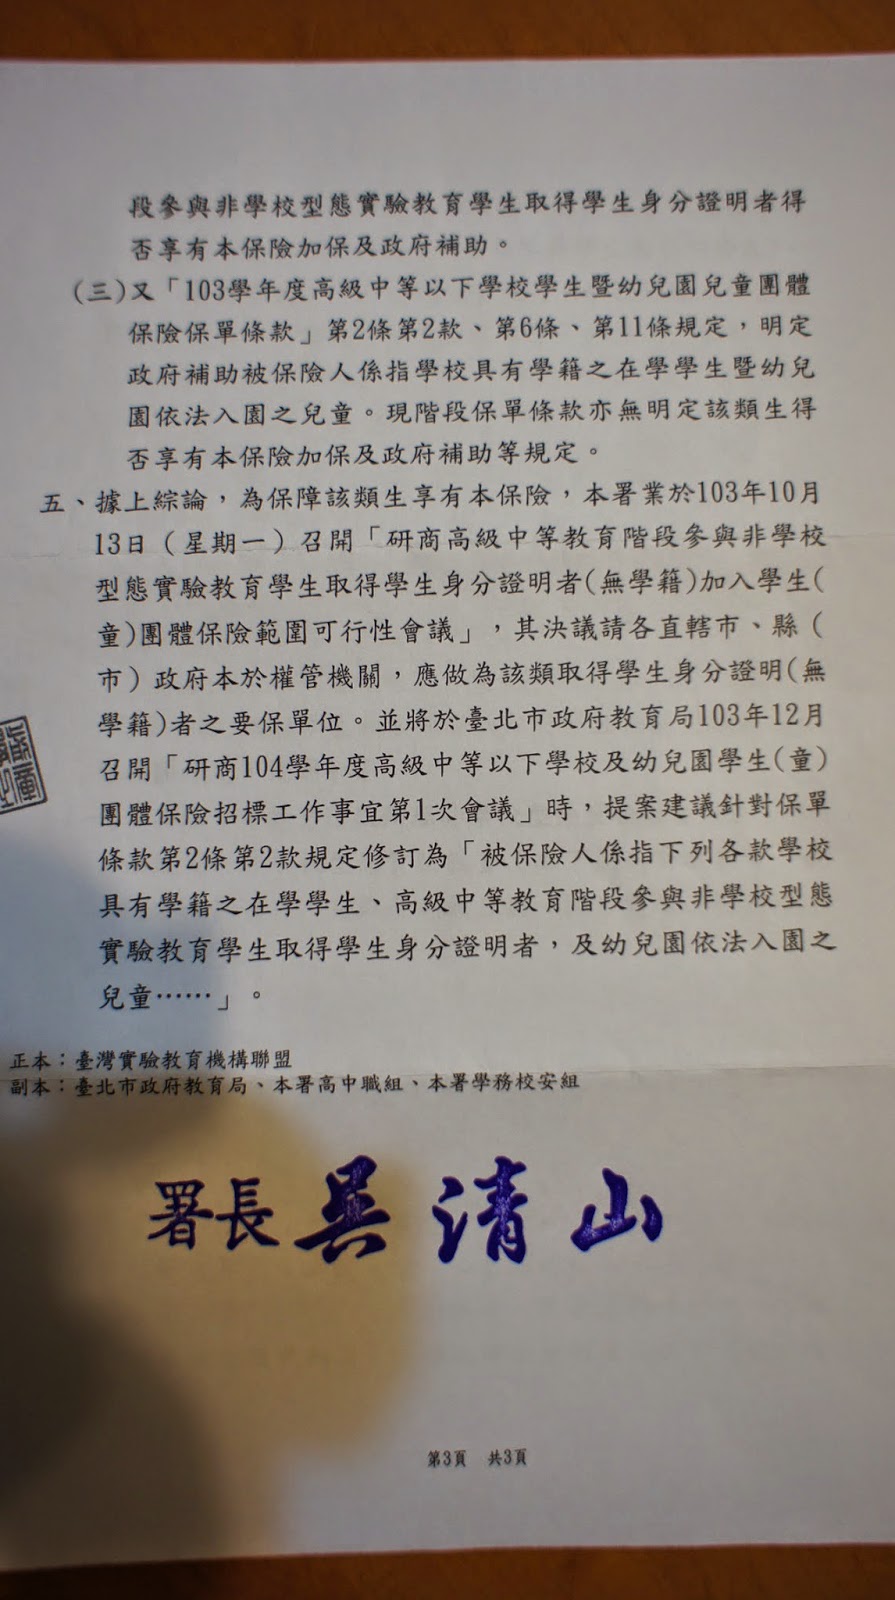 段參與非學校型態實驗教育學生取得學生身分證明者得
否享有本保險加保及政府補助。
(三)又「103學年度高級中等以下學校學生暨幼兒園兒童團體
保險保單條款」第2條第2款、第6條、第11條規定，明定
政府補助被保險人係指學校具有學籍之在學學生暨幼兒
園依法入園之兒童。現階段保單條款亦無明定該類生得
否享有本保險加保及政府補助等規定。
五、據上綜論，為保障該類生享有本保險，本署業於103年10月
13日（星期一）召開「研商高級中等教育階段參與非學校
型態實驗教育學生取得學生身分證明者(無學籍)加入學生(
童)團體保險範圍可行性會議」，其決議請各直轄市、縣（
市）政府本於權管機關，應做為該類取得學生身分證明(無
學籍)者之要保單位。並將於臺北市政府教育局103年12月
召開「研商104學年度高級中等以下學校及幼兒園學生(童)
團體保險招標工作事宜第1次會議」時，提案建議針對保單
條款第2條第2款規定修訂為「被保險人係指下列各款學校
具有學籍之在學學生、高級中等教育階段參與非學校型態
實驗教育學生取得學生身分證明者，及幼兒園依法入園之
兒童……」。
正本：臺灣實驗教育機構聯盟
副本：臺北市政府教育局、本署高中職組、本署學務校安組
署長 吳清山
第3頁 共3頁